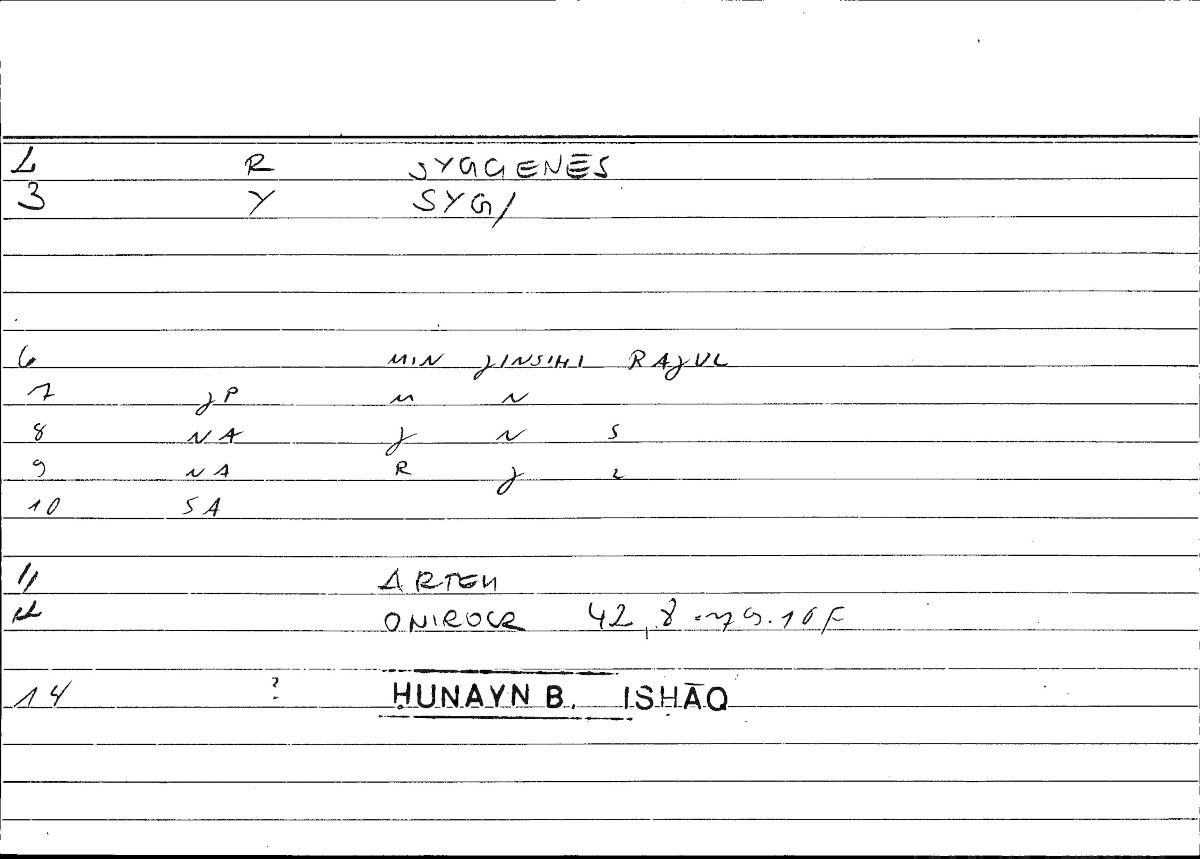 2 R SYGGENĒS
3 Y SYG/
6 MIN JINSIHI RAJUL
7 JP M N
8 NA J N S
9 NA R J L
10 SA
11 ARTEM
12 ONIROCR 42,8
14 ? ḤUNAYN B. ISḤĀQ